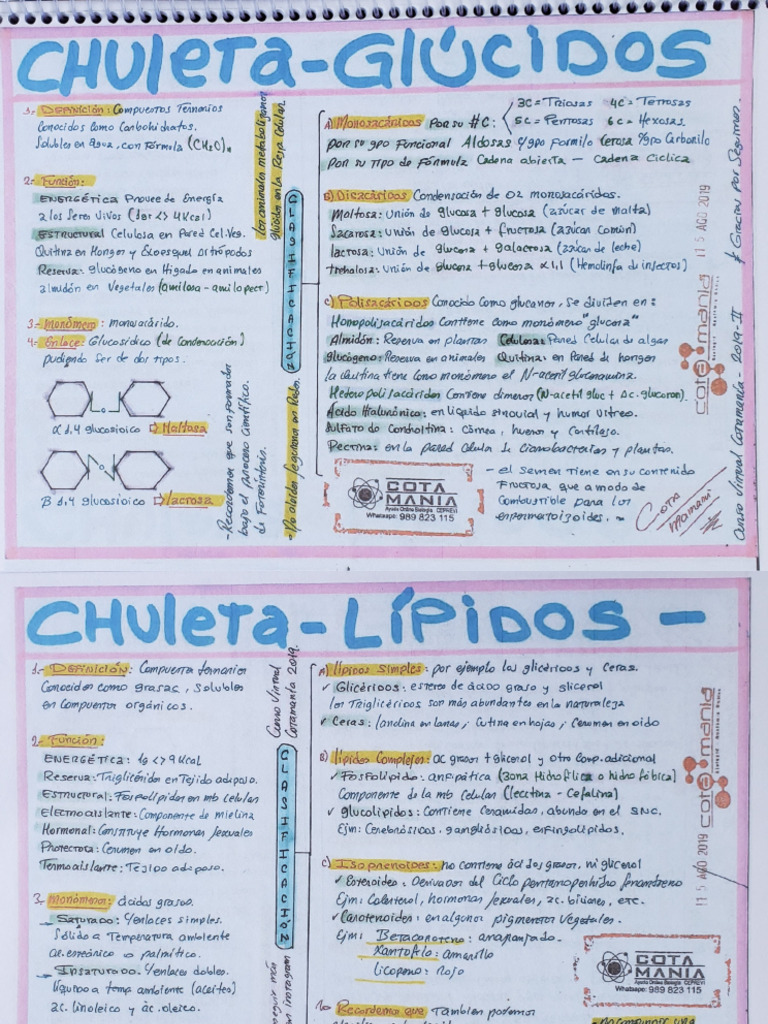 CHUleTa-GLÚCIDOS
1.- DEFINICIÓN: Compuestos Ternarios
Conocidos como Carbohidratos.
Solubles en Agua, con Fórmula (CH2O)n
2.- Función:
ENERGÉTICA Provee de Energía
a los Seres Vivos (1gr <> 4Kcal)
ESTRUCTURAL Celulosa en Pared Cel. Veg.
Quitina en Hongos y Exoesquel Artrópodos
Reserva: glucógeno en Hígado en animales
almidón en Vegetales (amilosa - amilopect)
3.- Monómero: monosacárido.
4.- Enlace: Glucosídico (de Condensación)
pudiendo ser de dos tipos.
O
α 1,4 glucosídico ⇨ Maltosa
O
B 1,4 glucosídico ⇨ lactosa
Los animales metabolizamos
glúcidos en la
Celular
CLASIFICACIÓN
- Recordemos que son formados
bajo el proceso
de Fotosíntesis.
- No olvides seguirnos en Redes.
A) Monosacáridos Por su #C:
3C = Triosas 4C = Tetrosas
5C = Pentosas 6C = Hexosas
por su gpo Funcional Aldosas gpo Formilo Cetosa gpo Carbonilo
Por su Tipo de Fórmula Cadena abierta - Cadena Cíclica
B) Disacáridos Condensación de 02 monosacáridos.
Maltosa: Unión de glucosa + glucosa (azúcar de Malta)
Sacarosa: Unión de glucosa + fructosa (azúcar Común)
lactosa: Unión de glucosa + galactosa (azúcar de leche)
trehalosa: Unión de glucosa + glucosa α1,1 (Hemolinfa de insectos)
C) Polisacáridos Conocido como glucanos, se dividen en:
Homopolisacáridos Contiene como monómero "glucosa"
Almidón: Reserva en plantas Celulosa: Pared Celular de algas
Glucógeno: Reserva en animales Quitina: en Pared de hongos
la Quitina tiene como monómero el N-acetil glucosamina.
Heteropolisacáridos Contiene dímeros (N-acetil gluc + Ac. glucoron)
Ácido Hialurónico: en líquido sinovial y humor Vítreo.
Sulfato de Condroitina: Córnea, huesos y Cartílago.
Pectina: en la pared Celula de Cianobacterias y plantas.
COTA
MANIA
Ayuda Online Biología CEPREVI
Whatsapp: 989 823 115
- el Semen tiene en su contenido
Fructosa que a modo de
Combustible para los
espermatozoides.
Cota
Mamani
11 5 AGO 2019
cotamanía
Curso Virtual Cotamanía - 2019-II
# Gracias por Seguirnos.
CHUleTa-LÍPIDOS -
1.- DEFINICIÓN: Compuestos ternarios
Conocidos como grasas, solubles
en Compuestos orgánicos.
2.- Función:
ENERGÉTICA: 1g <> 9Kcal
Reserva: Triglicérido en Tejido adiposo.
Estructural: Fosfolípidos en mb celular
Electroaislante: Componente de mielina
Hormonal: Constituye Hormonas sexuales
Protectora: Cerumen en oído.
Termoaislante: Tejido adiposo.
3.- Monómeros: ácidos grasos.
Saturado: Y enlaces simples.
Sólido a Temperatura ambiente
ac. esteárico o palmítico.
Insaturado: Y enlaces dobles.
líquido a temp ambiente (aceites)
ac. linoleico y ác. oleico.
Curso Virtual
Cotamanía 2019.
CLASIFICACIÓN
en instagram
A) lípidos Simples: por ejemplo los glicéridos y Ceras.
✓ Glicéridos: esteres de ácido graso y glicerol
los Triglicéricos son más abundantes en la naturaleza
✓ Ceras: lanolina en lanas; Cutina en hojas; Cerumen en oído
B) lípidos Complejos: ac grasos + glicerol y otro Comp. adicional
✓ Fosfolípido: anfipática (zona Hidrofílica o hidrofóbica)
Componente de la mb Celular (lecitina - Cefalina)
✓ glucolípidos: Contiene Ceramidas, abunda en el SNC.
Ejm: Cerebrósidos, gangliósidos, esfingolípidos.
C) Isoprenoides: no contiene ácidos grasos, ni glicerol
✓ Esteroides: Derivados del Ciclo pentanoperhidro fenantreno
Ejm: Colesterol, hormonas sexuales, ac. biliares, etc.
✓ Carotenoides: en algunos pigmentos Vegetales.
Ejm: Betacaroteno: anaranjado.
Xantofila: amarillo
licopeno: rojo
COTA
MANIA
Ayuda Online Biología CEPREVI
Whatsapp: 989 823 115
cotamanía
11 5 AGO 2019
Recordemos que Tambien podemos